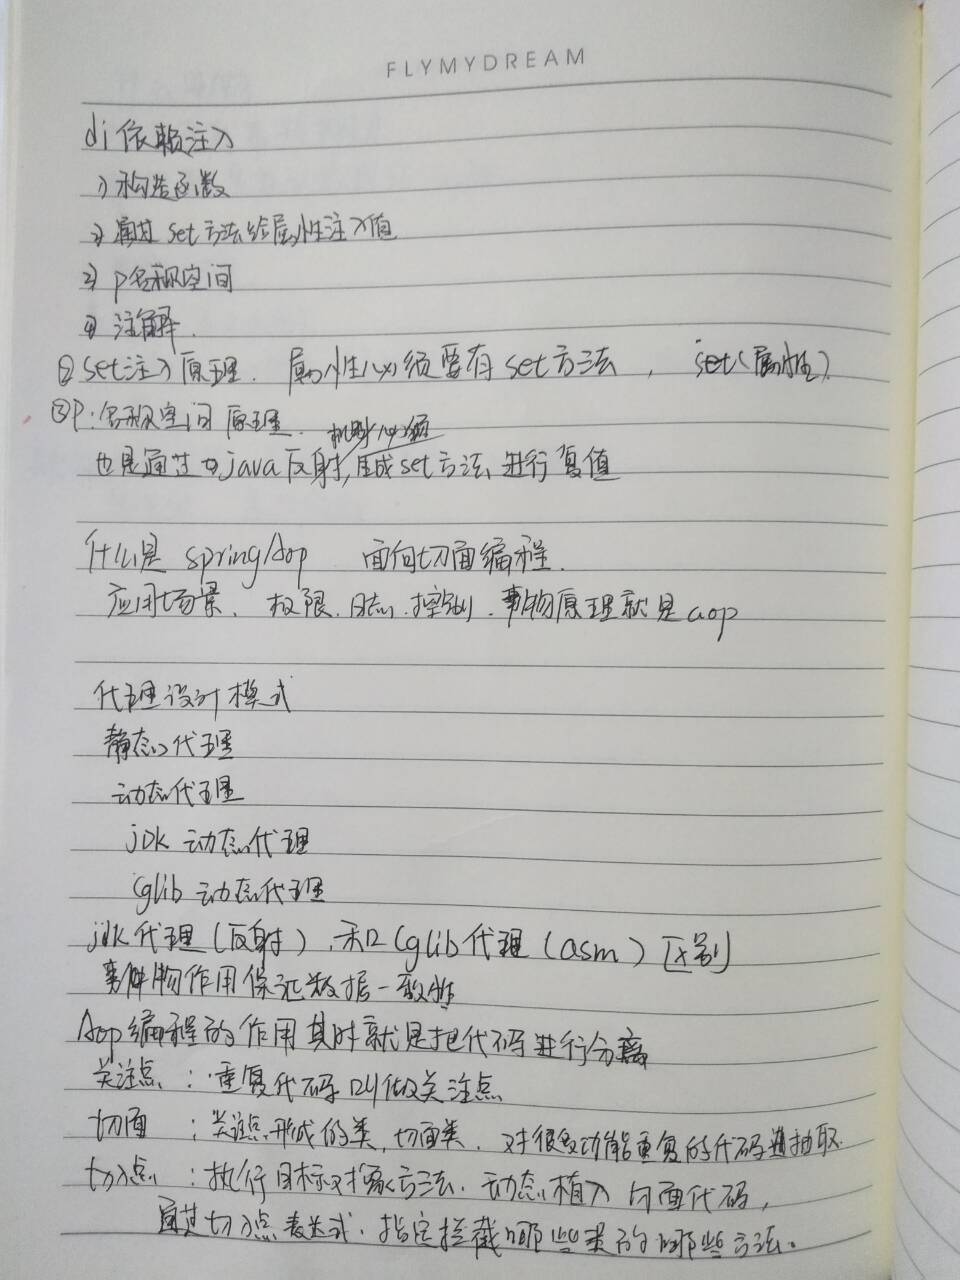 FLYMYDREAM
di 依赖注入
1) 构造函数
2) 通过 set方法给属性注入值
3) p名称空间
4) 注解.
② set注入原理. 属性必须要有set方法, set(属性).
③ P:名称空间 原理.
也是通过 java反射, 生成set方法 进行复值
什么是 springAop 面向切面编程.
应用场景. 权限.日志.控制.事物原理就是aop
代理设计模式
静态代理
动态代理
jDK 动态代理
Cglib 动态代理
jdk代理(反射),和Cglib代理(asm)区别
事物作用保证数据一致性
Aop编程的作用其时就是把代码进行分离
关注点 : 重复代码叫做关注点
切面 : 关注点形成的类,切面类.对很多功能重复的代码抽取.
切入点 : 执行目标对象方法.动态植入切面代码,
通过切入点表达式.指定拦截哪些类的哪些方法.